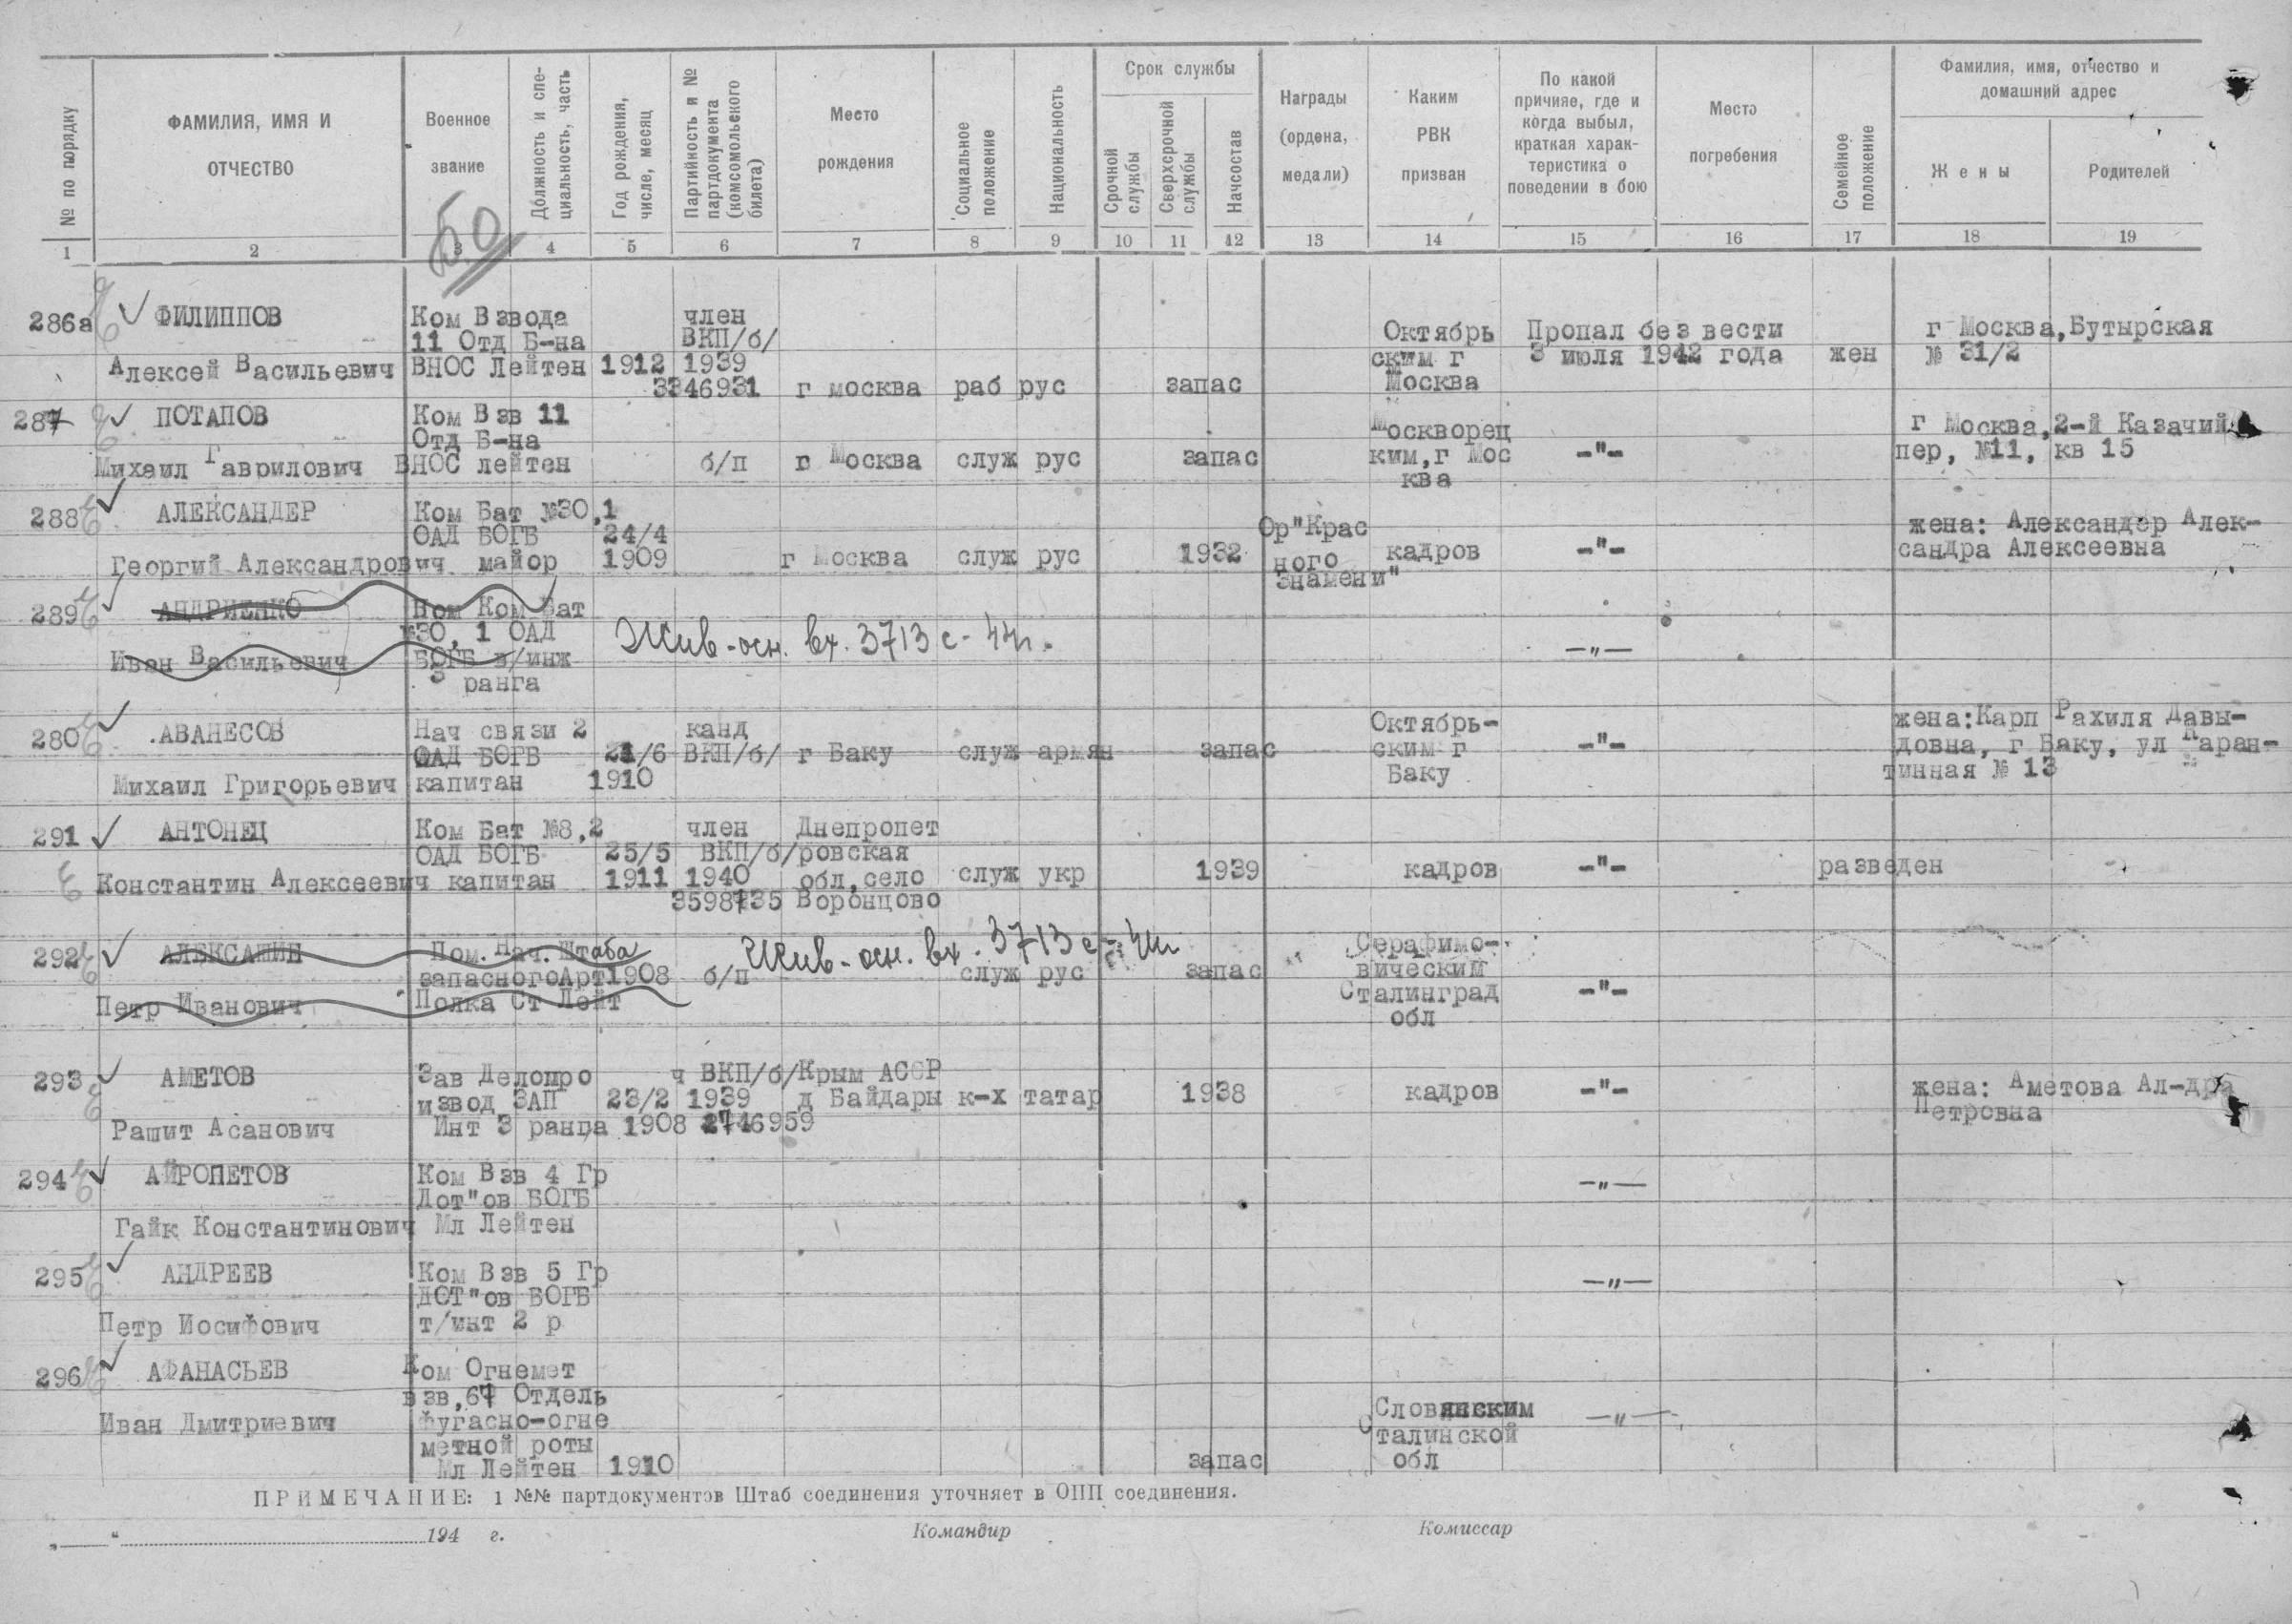 № по порядку
ФАМИЛИЯ, ИМЯ И ОТЧЕСТВО
Военное звание
Должность и спе-
циальность, часть
Год рождения,
число, месяц
Партийность и №
партдокумента
(комсомольского
билета)
Место
рождения
Социальное
положение
Национальность
Срок службы
Срочной
службы
Сверхсрочной
службы
Начсостав
Награды
(ордена,
медали)
Каким
РВК
призван
По какой
причине, где и
когда выбыл,
краткая харак-
теристика о
поведении в бою
Место
погребения
Семейное
положение
Фамилия, имя, отчество и
домашний адрес
Жены
Родителей
1 2 3 4 5 6 7 8 9 10 11 12 13 14 15 16 17 18 19
50
286а ФИЛИППОВ Ком Взвода член
11 Отд Б-на ВКП/б/ Октябрь Пропал без вести г Москва,Бутырская
Алексей Васильевич ВНОС Лейтен 1912 1939 ским г 3 июля 1942 года жен № 31/2
3346931 г москва раб рус запас Москва
287 ПОТАПОВ Ком Взв 11
Отд Б-на Москворец г Москва,2-й Казачий
Михаил Гаврилович ВНОС лейтен б/п г Москва служ рус запас ким,г Мос -"- пер, №11, кв 15
ква
288 АЛЕКСАНДЕР Ком Бат №30,1
ОАД БОГБ 24/4 Ор"Крас жена: Александер Алек-
Георгий Александрович майор 1909 г Москва служ рус 1932 ного кадров -"- сандра Алексеевна
знамени"
289 АНДРИЕНКО Пом Ком Бат
№30, 1 ОАД Жив-осн. вх. 3713 с-44г.
Иван Васильевич БОГБ в/инж -"-
3 ранга
280 АВАНЕСОВ Нач связи 2 канд Октябрь- жена:Карп Рахиля Давы-
ОАД БОГБ 21/6 ВКП/б/ г Баку служ армян запас ским г -"- довна, г Баку, ул Каран-
Михаил Григорьевич капитан 1910 Баку тинная № 13
291 АНТОНЕЦ Ком Бат №8,2 член Днепропет
ОАД БОГБ 25/5 ВКП/б/ ровская
Константин Алексеевич капитан 1911 1940 обл,село служ укр 1939 кадров -"- разведен
3598735 Воронцово
292 АЛЕКСАШИН Пом.Нач.Штаба Жив-осн. вх. 3713 с-44г Серафимо-
запасногоАрт 1908 б/п служ рус запас вическим
Петр Иванович Полка Ст Лейт Сталинград -"-
обл
293 АМЕТОВ Зав Делопро ч ВКП/б/ Крым АССР
извод ЗАП 23/2 1939 д Байдары к-х татар 1938 кадров -"- жена: Аметова Ал-дра
Рашит Асанович Инт 3 ранга 1908 2746959 Петровна
294 АЙРОПЕТОВ Ком Взв 4 Гр
Дот"ов БОГБ -"-
Гайк Константинович Мл Лейтен
295 АНДРЕЕВ Ком Взв 5 Гр
ДОТ"ов БОГБ -"-
Петр Иосифович т/инт 2 р
296 АФАНАСЬЕВ Ком Огнемет
взв,67 Отдель
Иван Дмитриевич фугасно-огне Словянским -"-
метной роты Сталинской
Мл Лейтен 1910 запас обл
ПРИМЕЧАНИЕ: 1 №№ партдокументов Штаб соединения уточняет в ОПП соединения.
„ " 194 г. Командир Комиссар